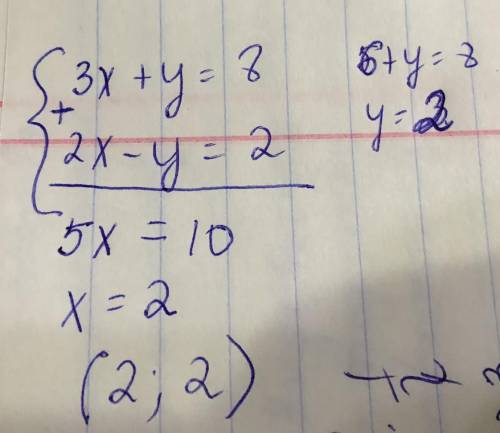 3x + y = 8
+
2x - y = 2
5x = 10
x = 2
(2; 2)
6 + y = 8
y = 2